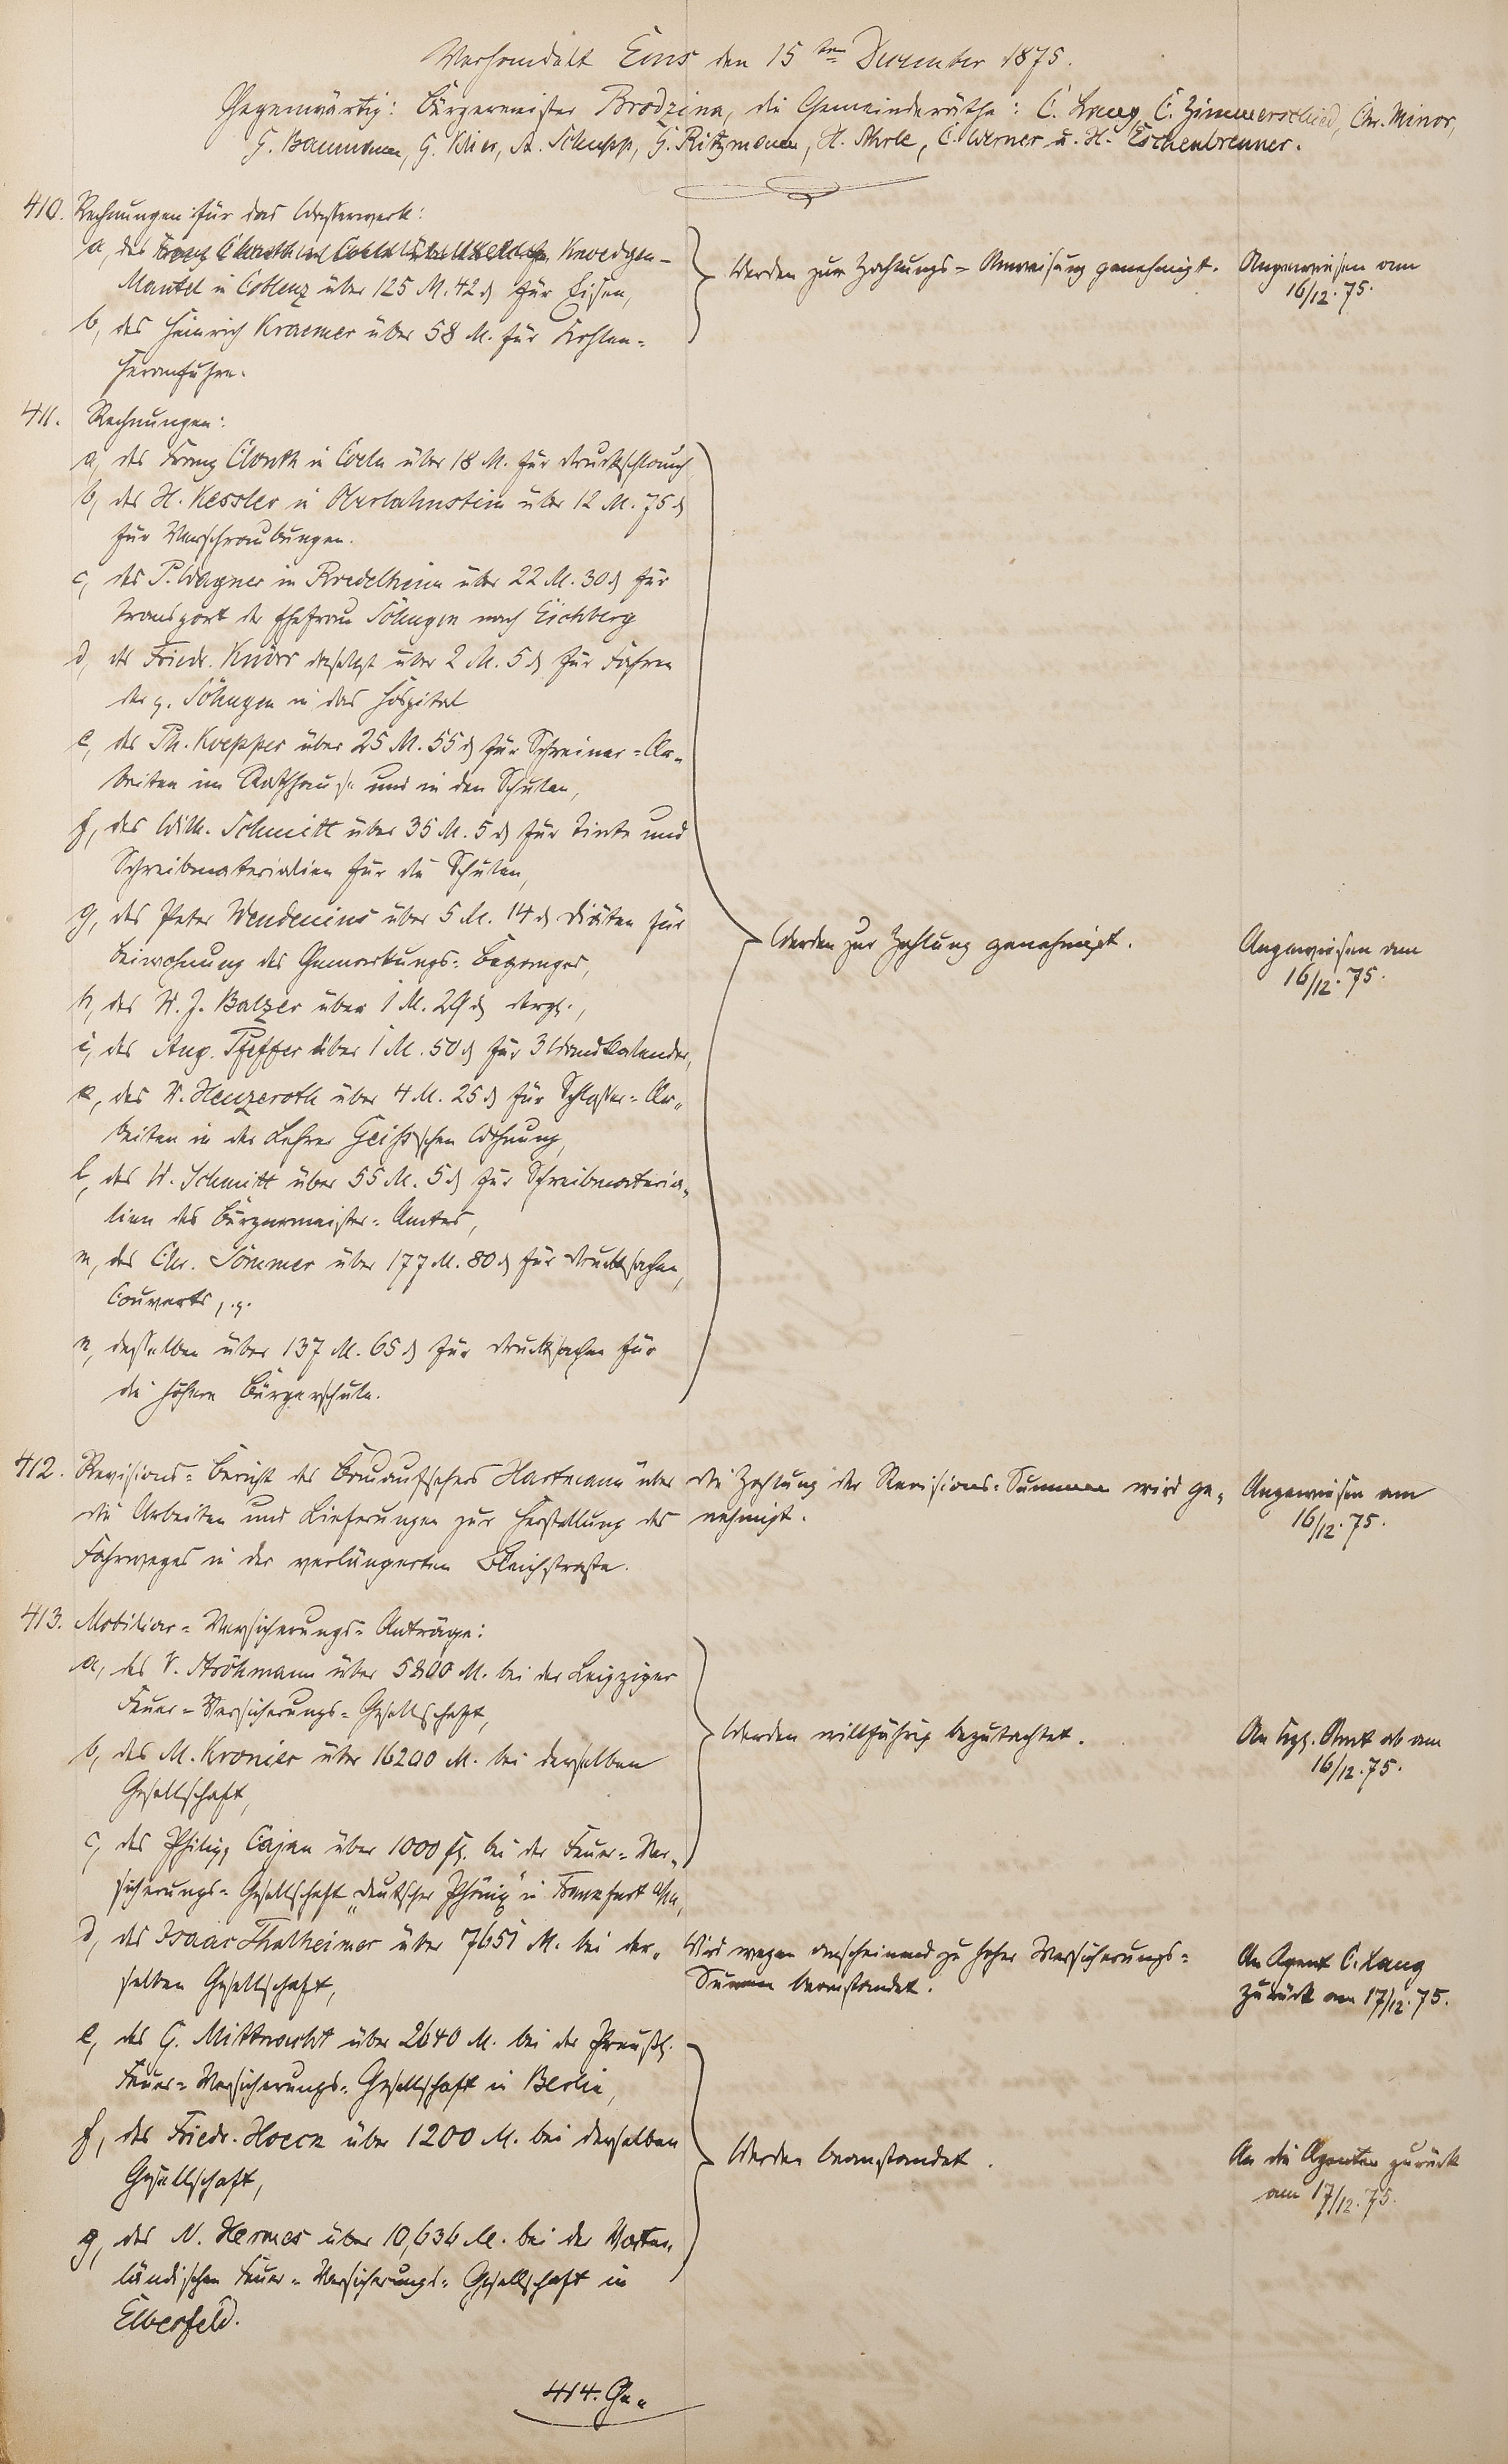 Verhandelt Ems den 15ten December 1875.
Gegenwärtig: Bürgermeister Brodzina, die Gemeinderäthe: C. Lang, C. Zimmerschied, Chr. Minor,
G. Baumann, G. Klier, A. Schupp, G. Ritzmann, H. Ahrle, C. Werner u. H. Eschenbrenner.
410. Rechnungen für das Wasserwerk:
a, des Knoedgen-
Mantel in Coblenz über 125 M. 42 ₰ für Eisen,
b, des Heinrich Kraemer über 58 M. für Kohlen-
heranfuhre.
Werden zur Zahlungs-Anweisung genehmigt.
Angewiesen am
16/12. 75.
411. Rechnungen:
a, des Franz Clouth in Coeln über 18 M. für Druckschlauch
b, des H. Kessler in Oberlahnstein über 12 M. 75 ₰
für Verschraubungen.
c, des P. Wagner in Roedelheim über 22 M. 30 ₰ für
Transport der Ehefrau Söhngen nach Eichberg
d, des Friedr. Knörr daselbst über 2 M. 5 ₰ für Fahren
der p. Söhngen in das Hospital
e, des Ph. Koepper über 25 M. 55 ₰ für Schreiner-Ar-
beiten im Rathhause und in den Schulen,
f, des Wilh. Schmitt über 35 M. 5 ₰ für Tinte und
Schreibmaterialien für die Schulen,
g, des Peter Wendenius über 5 M. 14 ₰ Diäten für
Beiwohnung des Gemarkungs-Beganges,
h, des W. J. Balzer über 1 M. 29 ₰ dergl.,
i, des Aug. Pfeffer über 1 M. 50 ₰ für 3 Wandkalender,
k, des W. Henzeroth über 4 M. 25 ₰ für Schlosser-Ar-
beiten in der Lehrer Geiß'schen Wohnung,
l, des W. Schmitt über 55 M. 5 ₰ für Schreibmateria-
lien des Bürgermeister-Amtes,
m, des Chr. Sommer über 177 M. 80 ₰ für Drucksachen,
Couverts, p.p.
n, desselben über 137 M. 65 ₰ für Drucksachen für
die höhere Bürgerschule.
Werden zur Zahlung genehmigt.
Angewiesen am
16/12. 75.
412. Revisions-Bericht des Bauaufsehers Hartmann über
die Arbeiten und Lieferungen zur Herstellung des
Fahrweges in der verlängerten Bleichstraße.
Die Zahlung der Revisions-Summen wird ge-
nehmigt.
Angewiesen am
16/12. 75.
413. Mobiliar-Versicherungs-Anträge:
a, des V. Ströhmann über 5800 M. bei der Leipziger
Feuer-Versicherungs-Gesellschaft,
b, des M. Kronier über 16200 M. bei derselben
Gesellschaft,
c, des Philipp Cajan über 1000 fl. bei der Feuer-Ver-
sicherungs-Gesellschaft „deutscher Phönix" in Frankfurt a/M,
Werden willfährig begutachtet.
An Kgl. Amt ab am
16/12. 75.
d, des Isaac Thalheimer über 7651 M. bei der-
selben Gesellschaft,
Wird wegen anscheinend zu hoher Versicherungs-
Summe beanstandet.
An Agent C. Lang
zurück am 17/12. 75.
e, des G. Mittnacht über 2640 M. bei der Preußs.
Feuer-Versicherungs-Gesellschaft in Berlin,
f, des Friedr. Hoeck über 1200 M. bei derselben
Gesellschaft,
g, des N. Hermes über 10,636 M. bei der Vater-
ländischen Feuer-Versicherungs-Gesellschaft in
Elberfeld.
Werden beanstandet.
An die Agenten zurück
am 17/12. 75.
414. Ge-